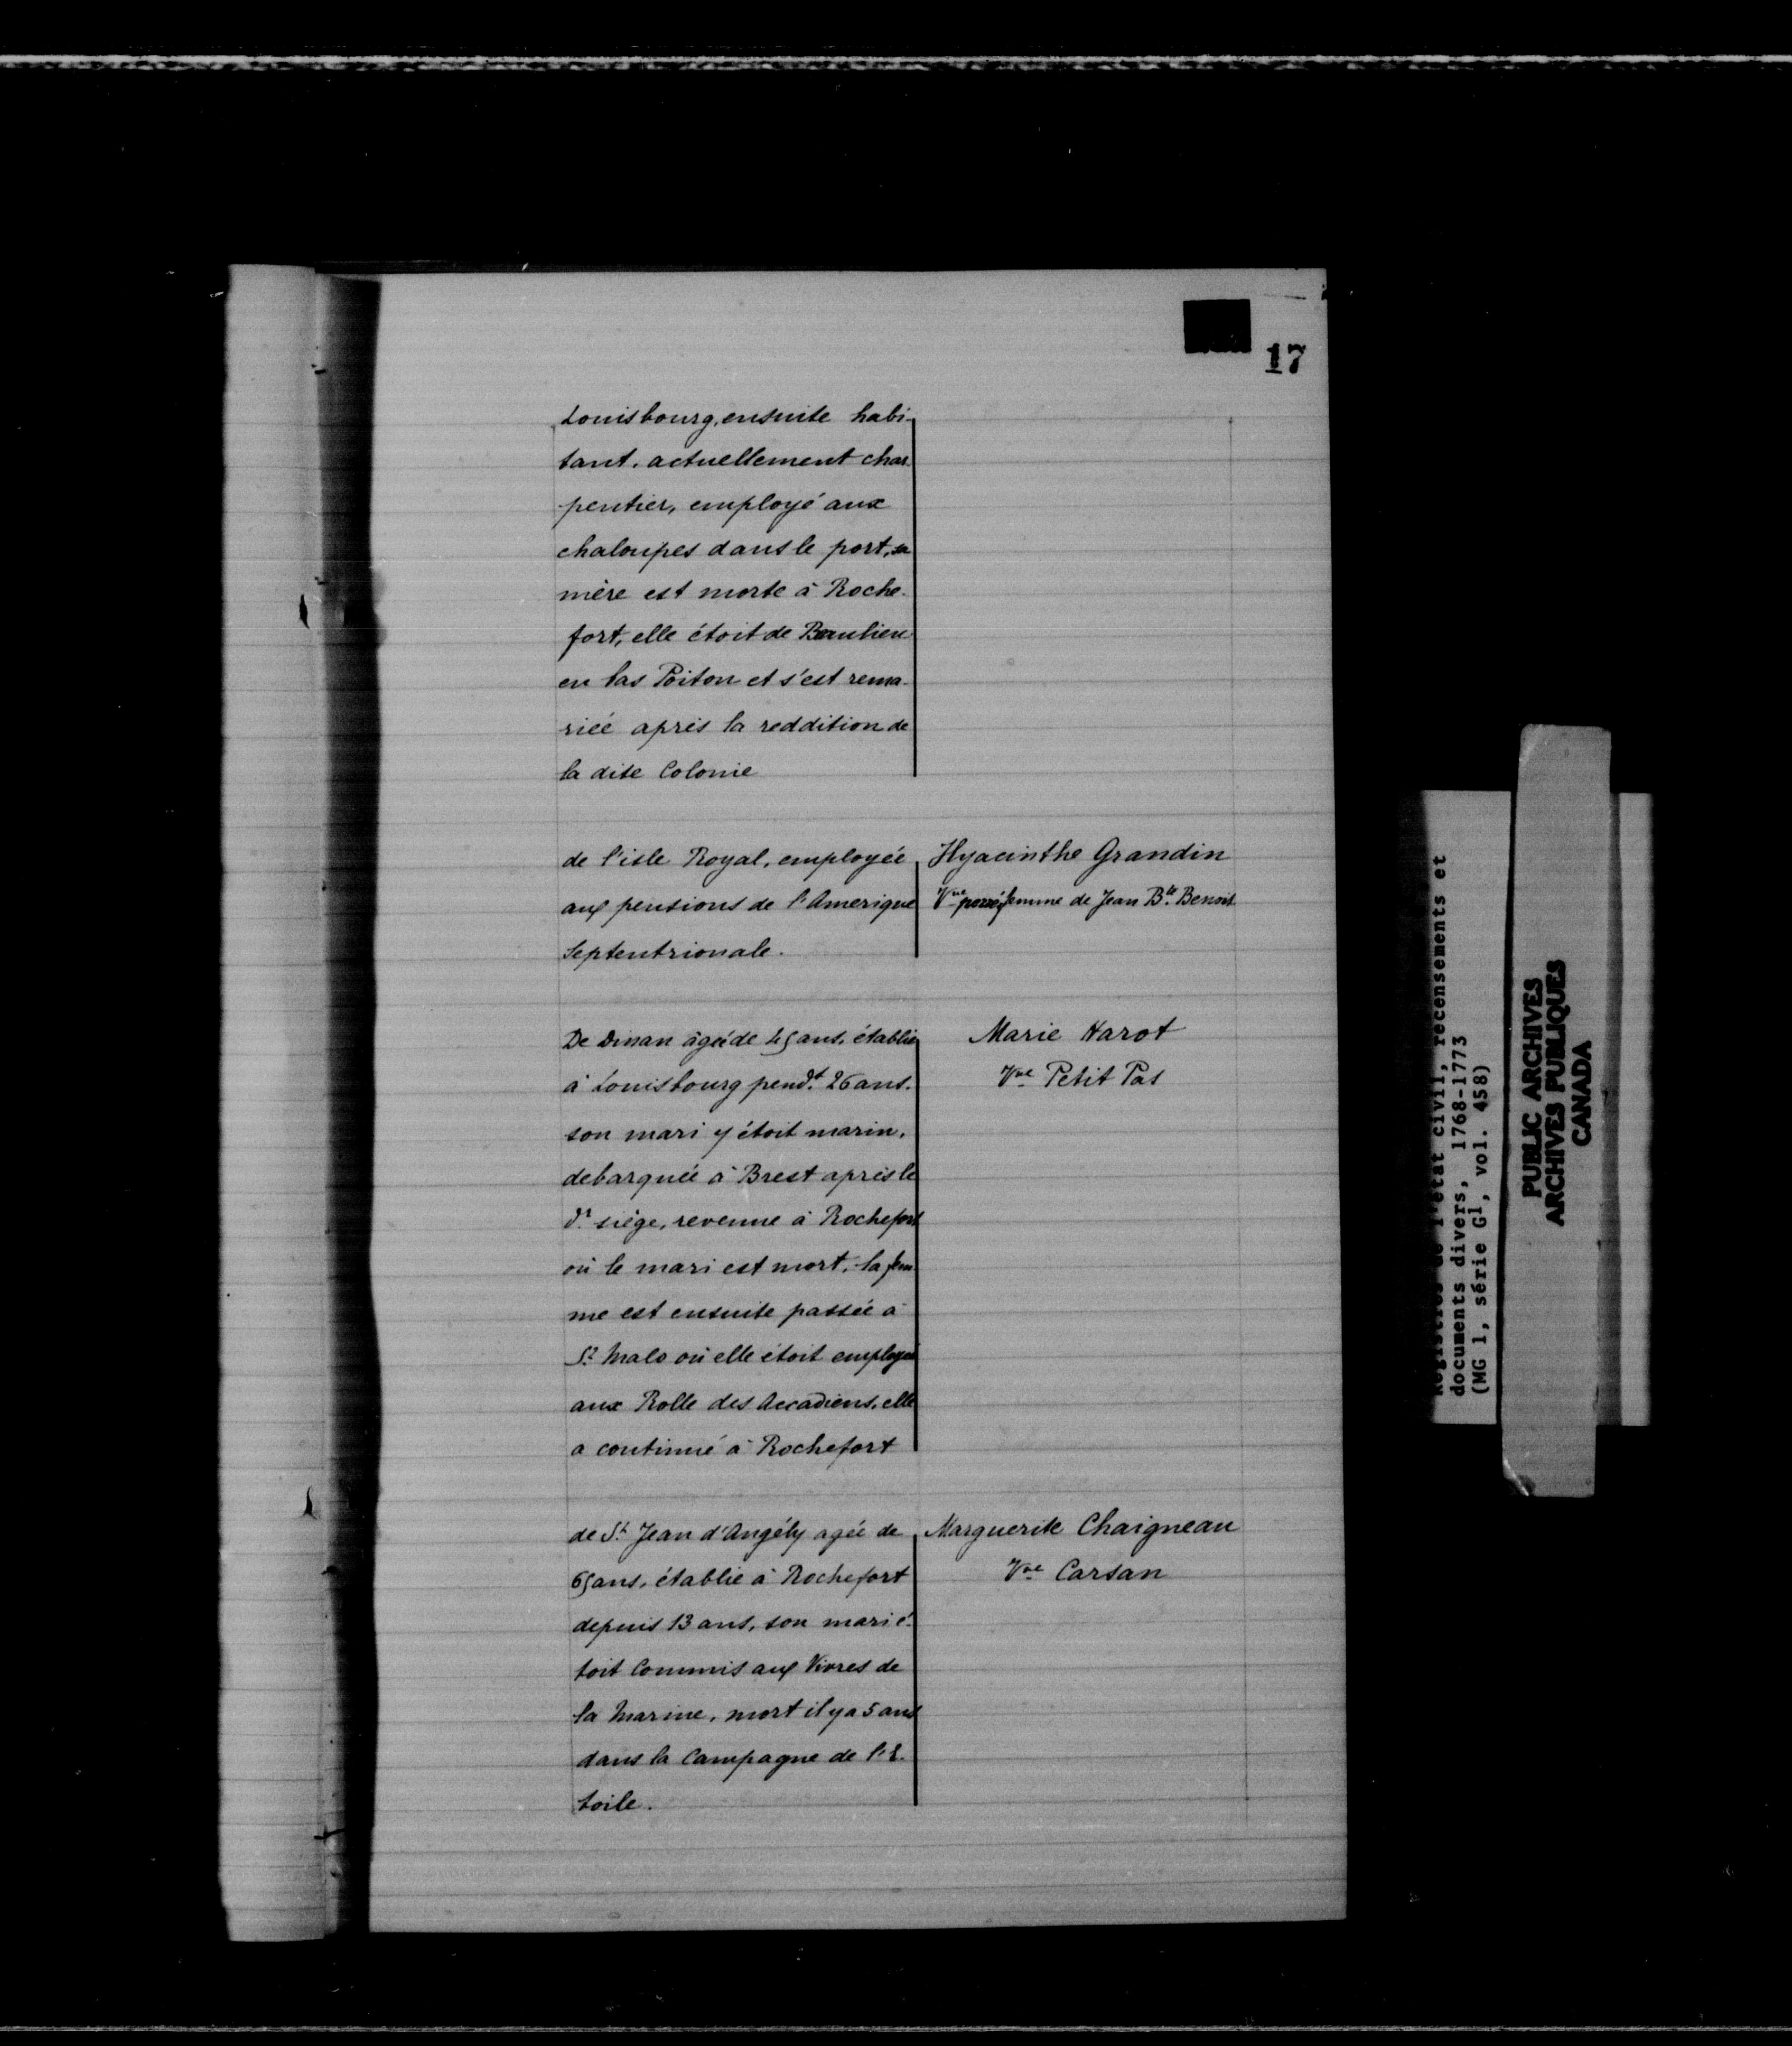 17
Louisbourg, ensuite habi-
tant, actuellement char
pentier, employé aux
chaloupes dans le port, sa
mère est morte à Roche-
fort, elle étoit de Beaulieu
en bas Poitou et s'est rema-
riée après la reddition de
la dite Colonie
de l'isle Royal, employée
aux pensions de l'Amerique
Septentrionale.
Hyacinthe Grandin
Vve femme de Jean Bte Benoit
De Dinan âgée de 45 ans, établie
à Louisbourg pendt 26 ans.
son mari y étoit marin,
debarquée à Brest après le
dt siège, revenue à Rochefort
où le mari est mort, la fem
me est ensuite passée à
St Malo où elle étoit employée
aux Rolle des Accadiens, elle
a continué à Rochefort
Marie Harot
Vve Petit Pas
de St Jean d'Angély agée de
65 ans, établie à Rochefort
depuis 13 ans, son mari é-
toit Commis aux Vivres de
la Marine, mort il y a 5 ans
dans la Campagne de l'E-
toile.
Marguerite Chaigneau
Vve Carsan
Registres de l'état civil, recensements et
documents divers, 1768-1773
(MG 1, série G1, vol. 458)
PUBLIC ARCHIVES
ARCHIVES PUBLIQUES
CANADA